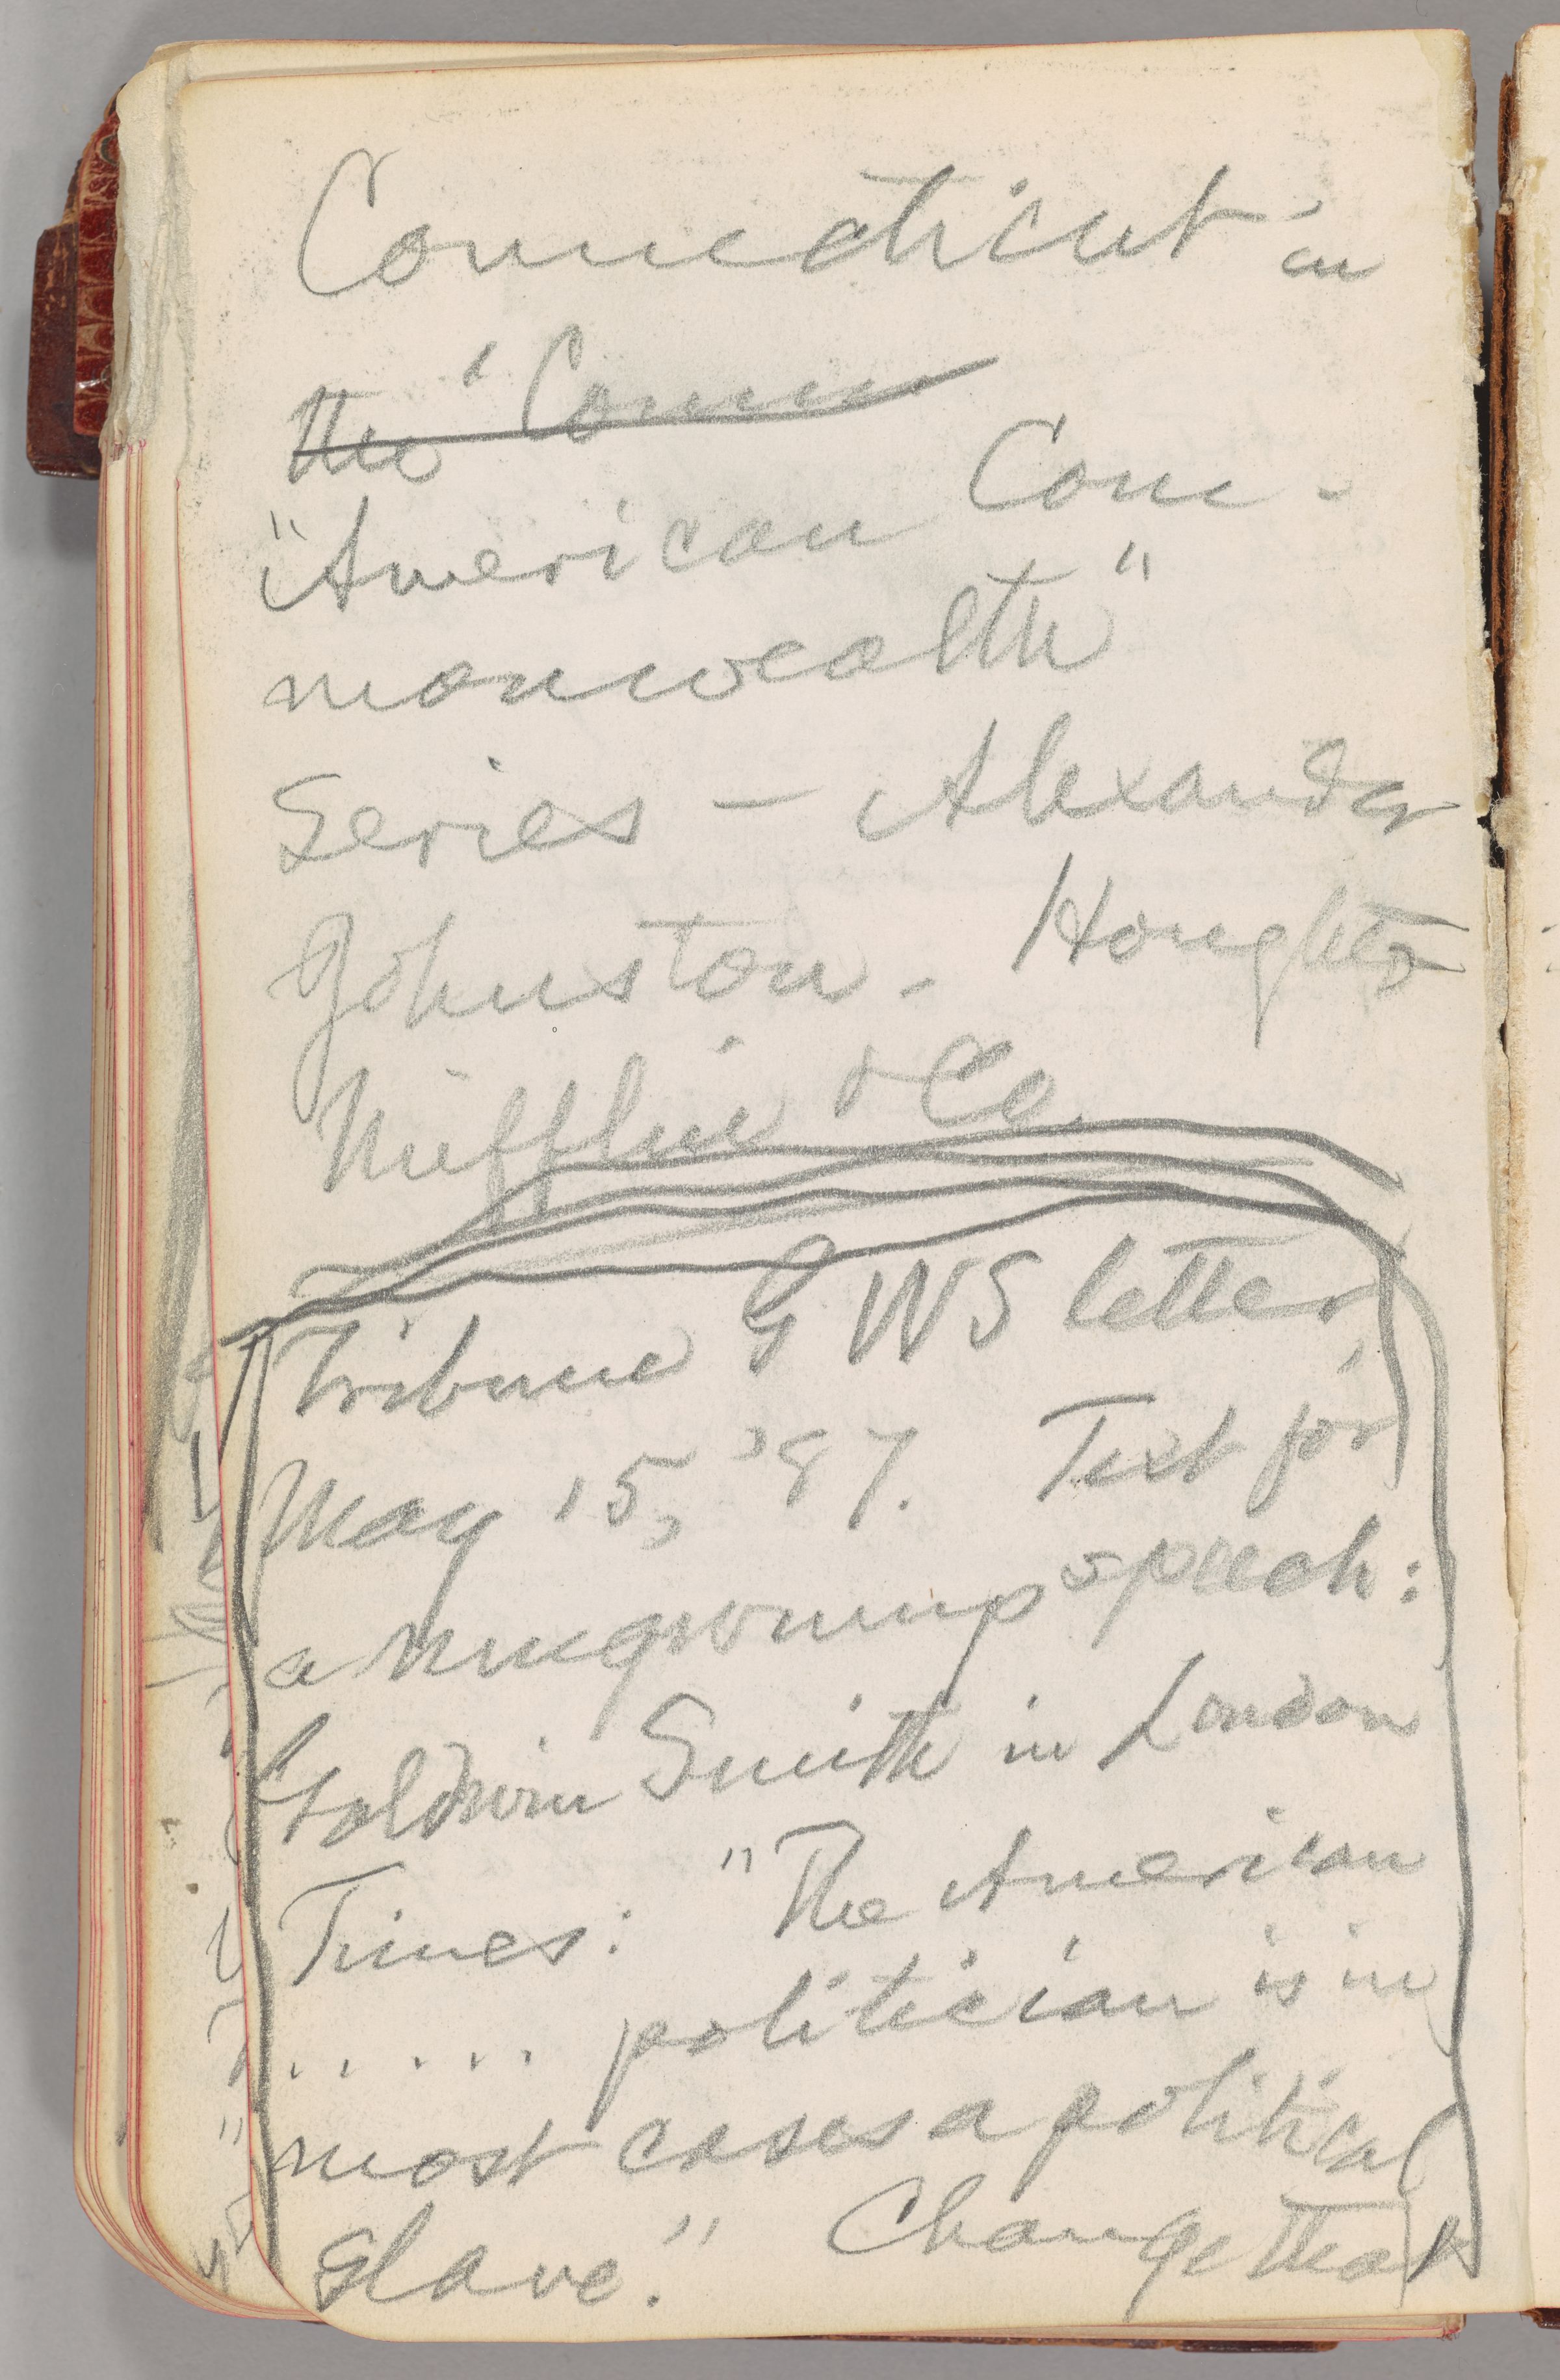 Connecticut in
the "Conn
"American Com-
monwealth"
Series — Alexander
Johnston. Houghton
Mifflin & Co.
Tribune GWS letter
May 15, '87. Text for
a mugwump speech:
Goldwin Smith in London
Times: "The American
..... politician is in
most cases a political
slave." Change that